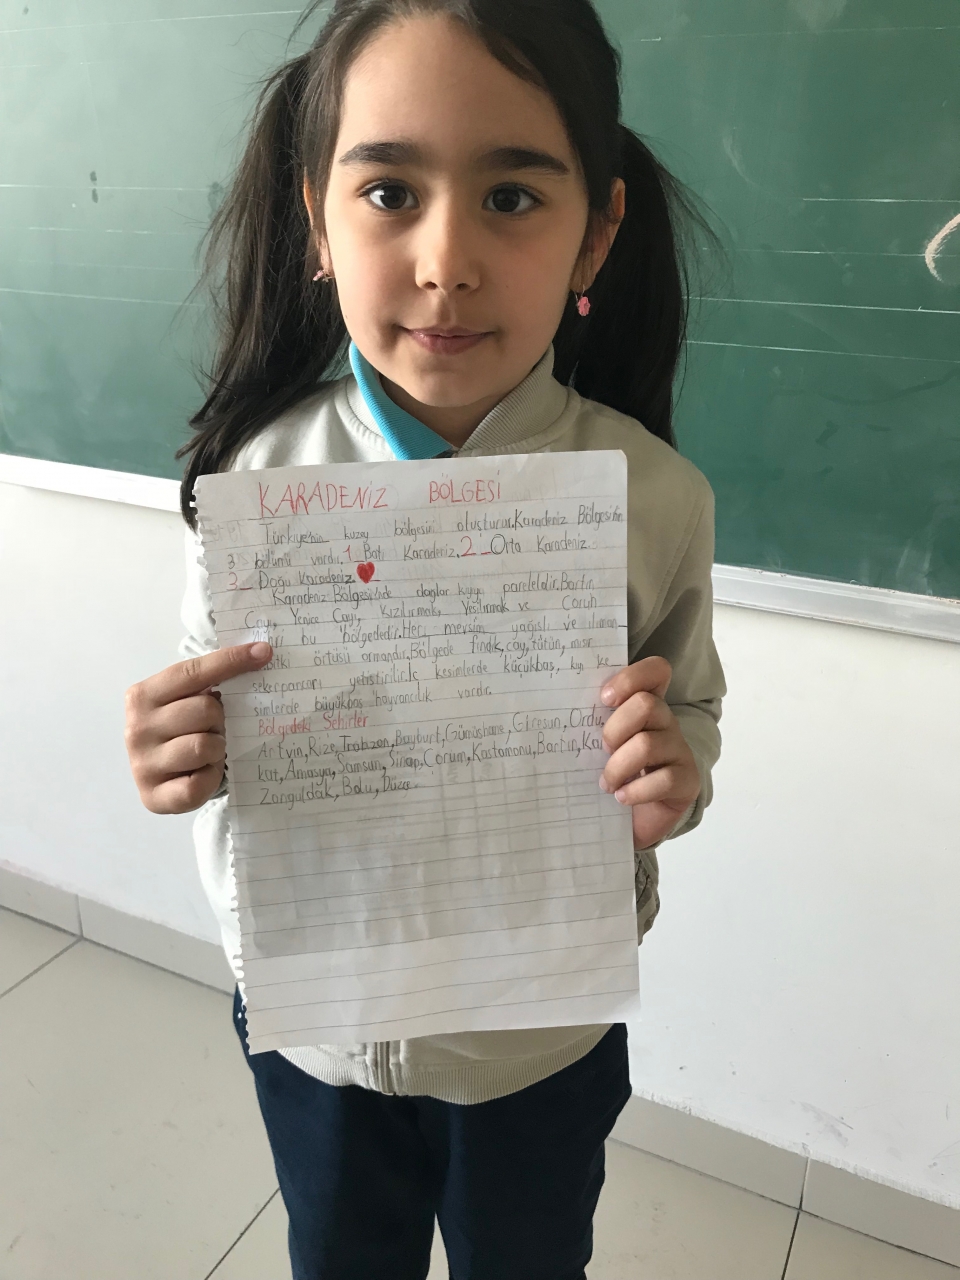 KARADENİZ BÖLGESİ
Türkiye'nin kuzey bölgesini oluşturur. Karadeniz Bölgesinin
3 bölümü vardır. 1_Batı Karadeniz. 2_Orta Karadeniz.
3_Doğu Karadeniz
Karadeniz Bölgesinde dağlar kıyıya pareleldir. Bartın
Çayı, Yenice Çayı, Kızılırmak, Yeşilırmak ve Çoruh
bu bölgededir. Her mevsim yağışlı ve ılıman
bitki örtüsü ormandır. Bölgede fındık, çay, tütün, mısır
şekerpancarı yetiştirilir. İç kesimlerde küçükbaş, kıyı ke
simlerde büyükbaş hayvancılık vardır.
Bölgedeki Şehirler
Artvin, Rize, Trabzon, Bayburt, Gümüşhane, Giresun, Ordu,
kat, Amasya, Samsun, Sinop, Çorum, Kastamonu, Bartın, Ka
Zonguldak, Bolu, Düzce.